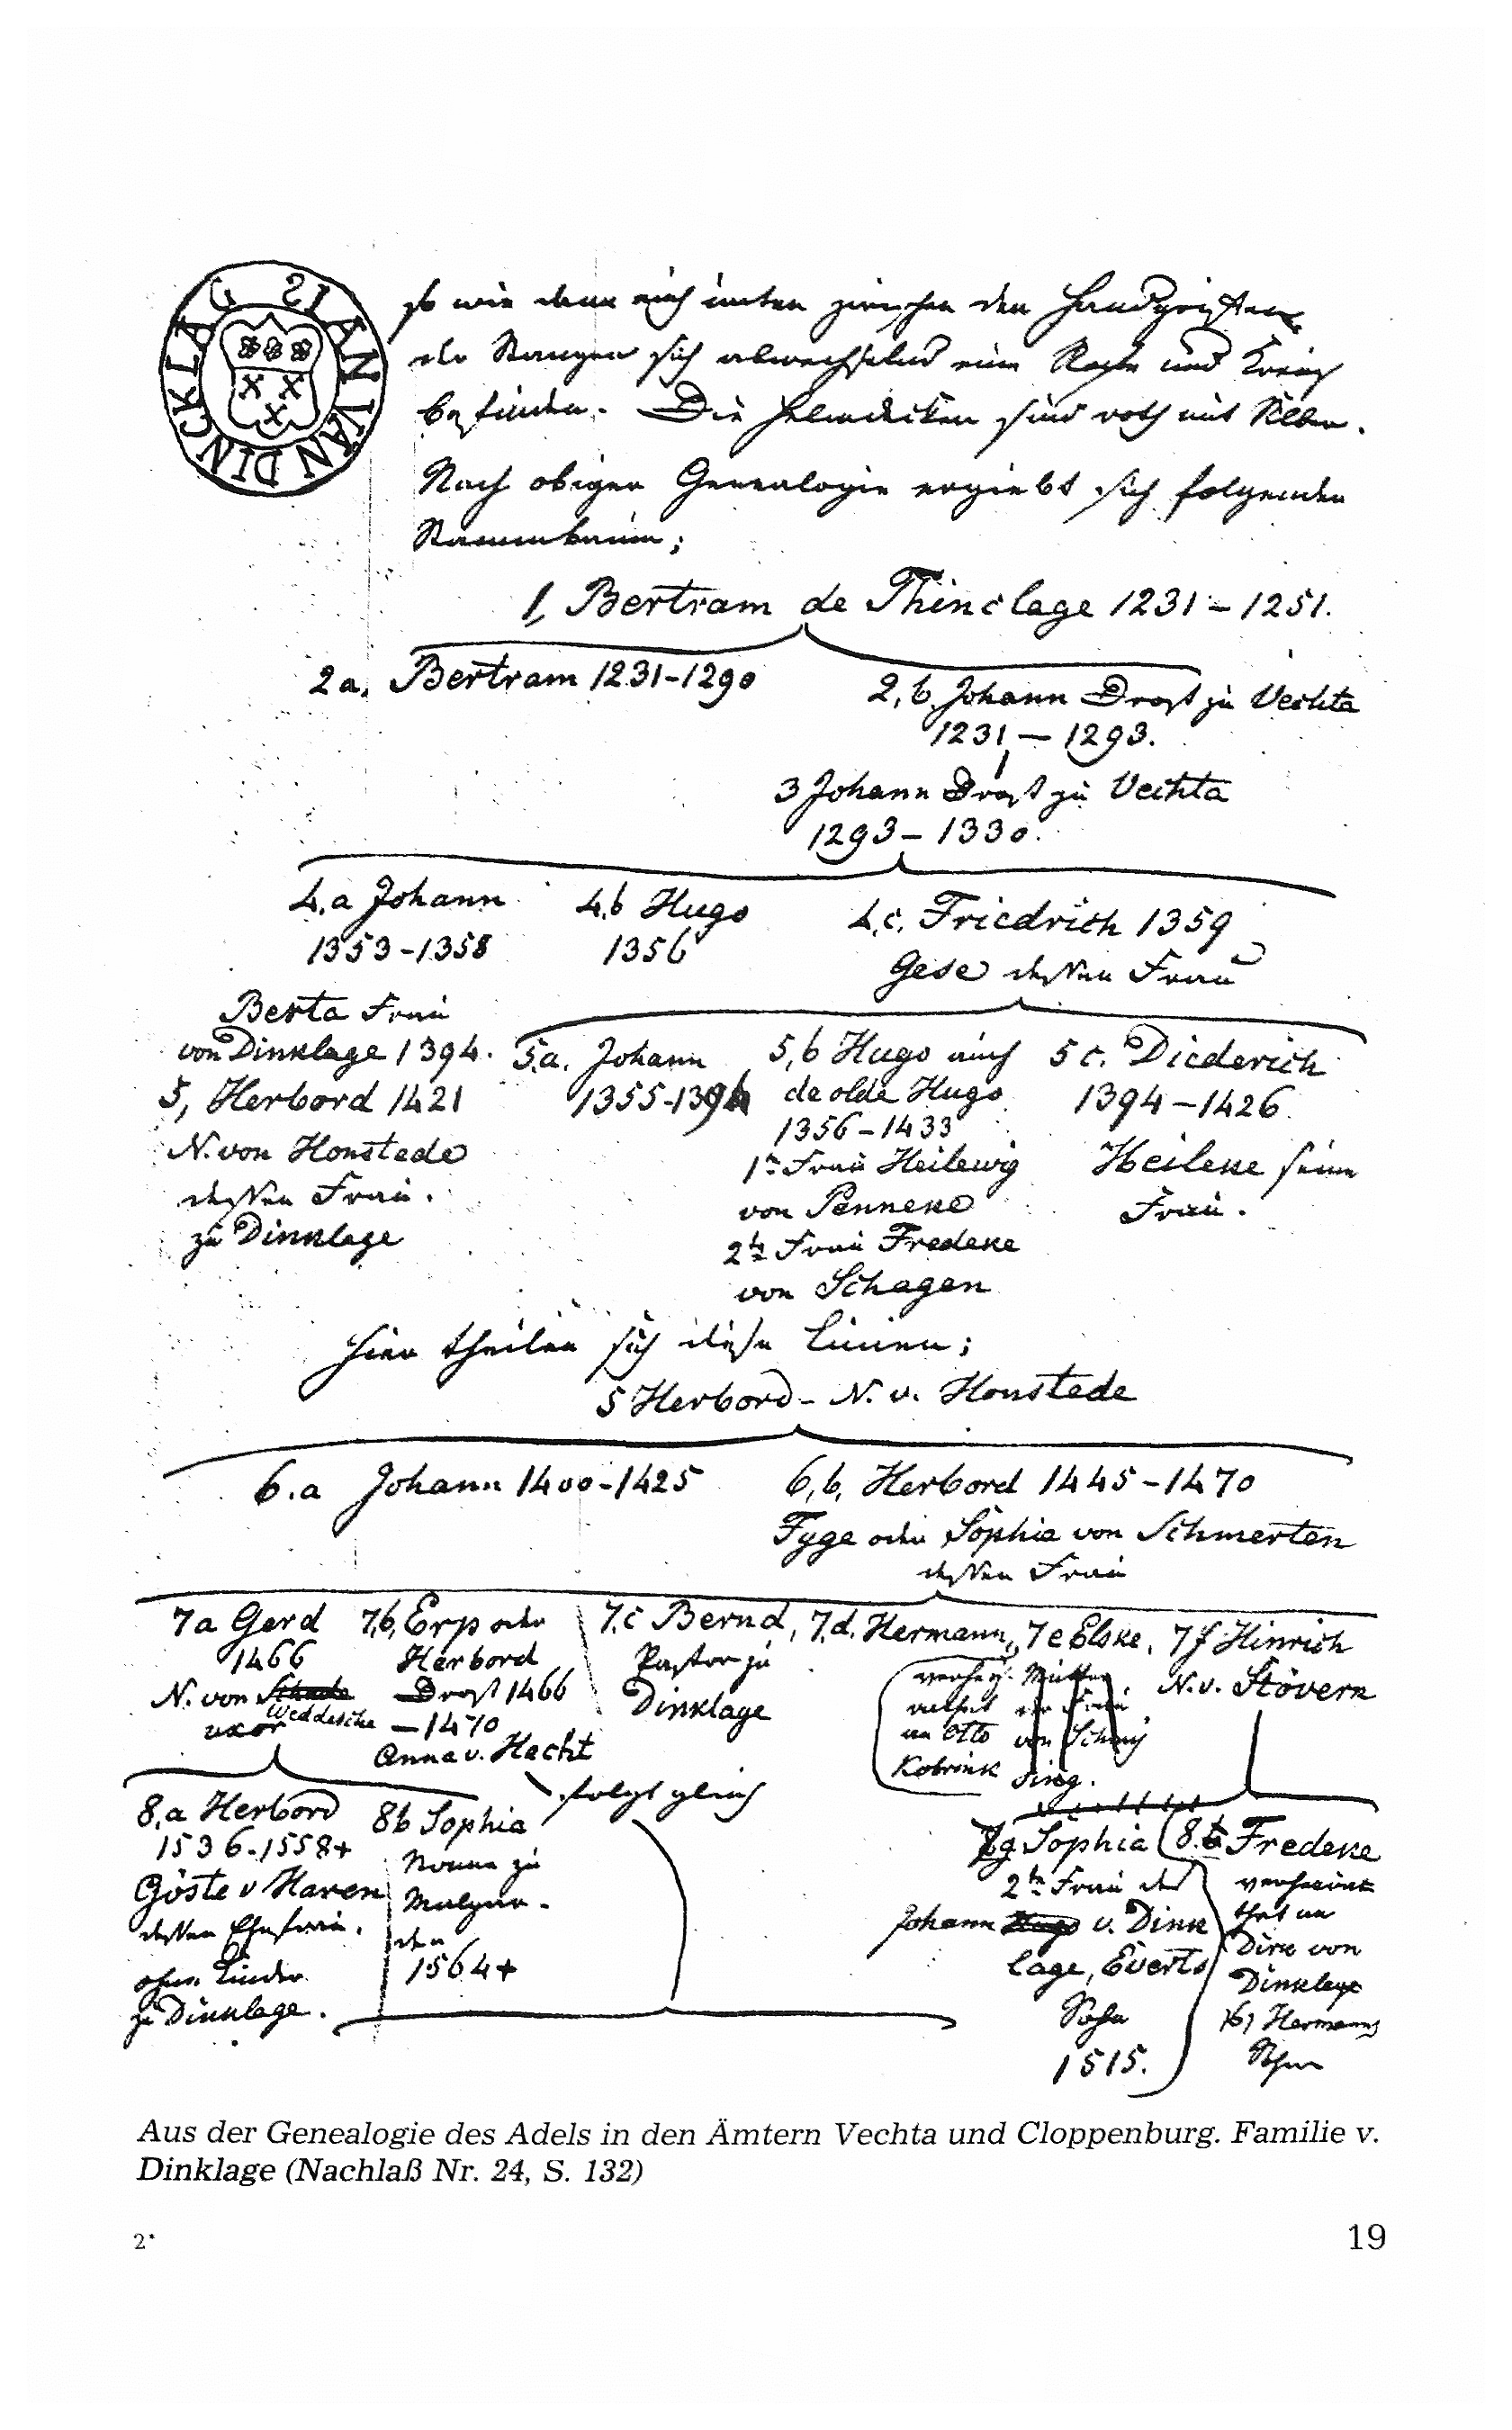 S IAN VAN DINCKLAG
so wie denn auch unten zwischen den
der Stangen sich abwechselnd eine Rose und Kreuz
befinden. Die Helmdecken sind roth mit Silber.
Nach obiger Genealogie ergiebt sich folgender
Stammbaum;
1, Bertram de Thinclage 1231 – 1251.
2a, Bertram 1231-1290
2,b, Johann Drost zu Vechta
1231 — 1293.
3 Johann Drost zu Vechta
1293 – 1330.
4,a Johann 4,b Hugo 4,c, Friedrich 1359
1353-1358 1356 Gese dessen Frau
Berta Frau
von Dinklage 1394.
5, Herbord 1421
N. von Honstede
dessen Frau.
zu Dinklage
5,a. Johann
1355-1394
5,b Hugo auch
de olde Hugo
1356-1433
1te Frau Heilewig
von Penneke
2te Frau Fredeke
von Schagen
5 c. Diederich
1394-1426
Heileke seine
Frau.
Hier theilen sich diese Linien;
5 Herbord - N. v. Honstede
6.a Johann 1400-1425 6,b, Herbord 1445-1470
Fyge oder Sophia von Schmerten
dessen Frau
7a Gerd
1466
N. von Schade
Weddesche
uxor
7,b, Erp oder
Herbord
Drost 1466
– 1470
Anna v. Hacht
folgt gleich
7,c Bernd,
Pastor zu
Dinklage
7,d. Hermann, 7e Elske, 7f Hinrich
N. v. Stövern
verheir.
an Otto
Kobrink
8,a Herbord
1536-1558+
Göste v Haren
dessen Ehefrau.
ohne Kinder
zu Dinklage.
8b Sophia
Nonne zu
Malgar-
den
1564+
7g Sophia
2te Frau des
Johann Hugo v. Dink
lage, Everts
Sohn
1515.
8.b Fredeke
verheira
thet an
Dirk von
Dinklage
Hermanns
Sohn
Aus der Genealogie des Adels in den Ämtern Vechta und Cloppenburg. Familie v.
Dinklage (Nachlaß Nr. 24, S. 132)
2*
19